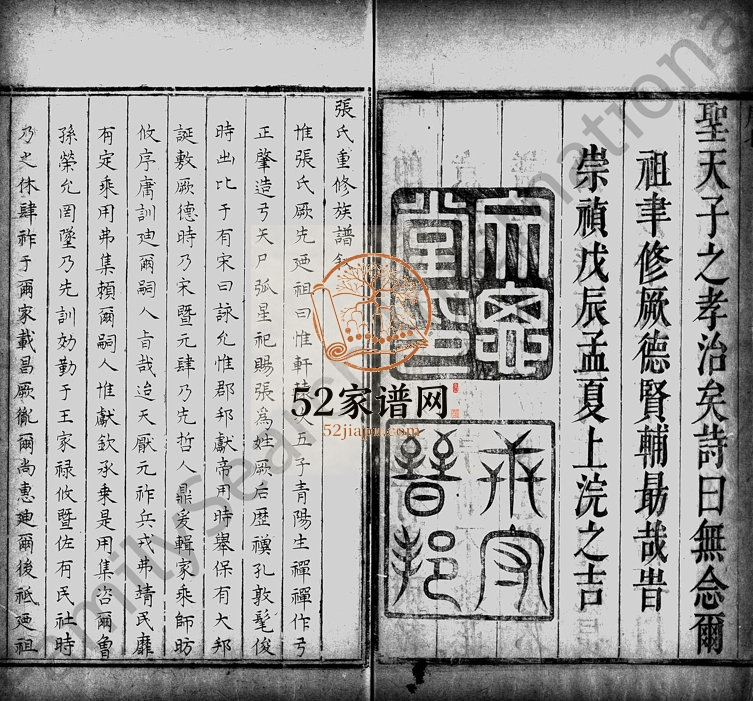 聖天子之孝治矣詩曰無念爾
祖聿修厥德賢輔勗哉旹
崇禎戊辰孟夏上浣之吉
張氏重修族譜
惟張氏厥先廼祖曰惟軒五子青陽生禪禪作弓
正肇造弓矢尸弧星祀賜張為姓厥后歷禩孔敦髦俊
時出比于有宋曰詠允惟郡邦獻帝用時舉保有大邦
誕敷厥德時乃宋暨元肆乃先哲人鼎爰輯家乘師昉
攸序庸訓廸爾嗣人旹哉迨天厭元祚兵戎弗靖民靡
有定乘用弗集賴爾嗣人惟獻欽承乘是用集咨爾魯
孫榮允罔墜乃先訓効勤于王家祿攸暨佐有民社時
乃之休肆祚于爾家載昌厥胤爾尚惠廸爾後祗廼祖
52家谱网
52jiapu.com